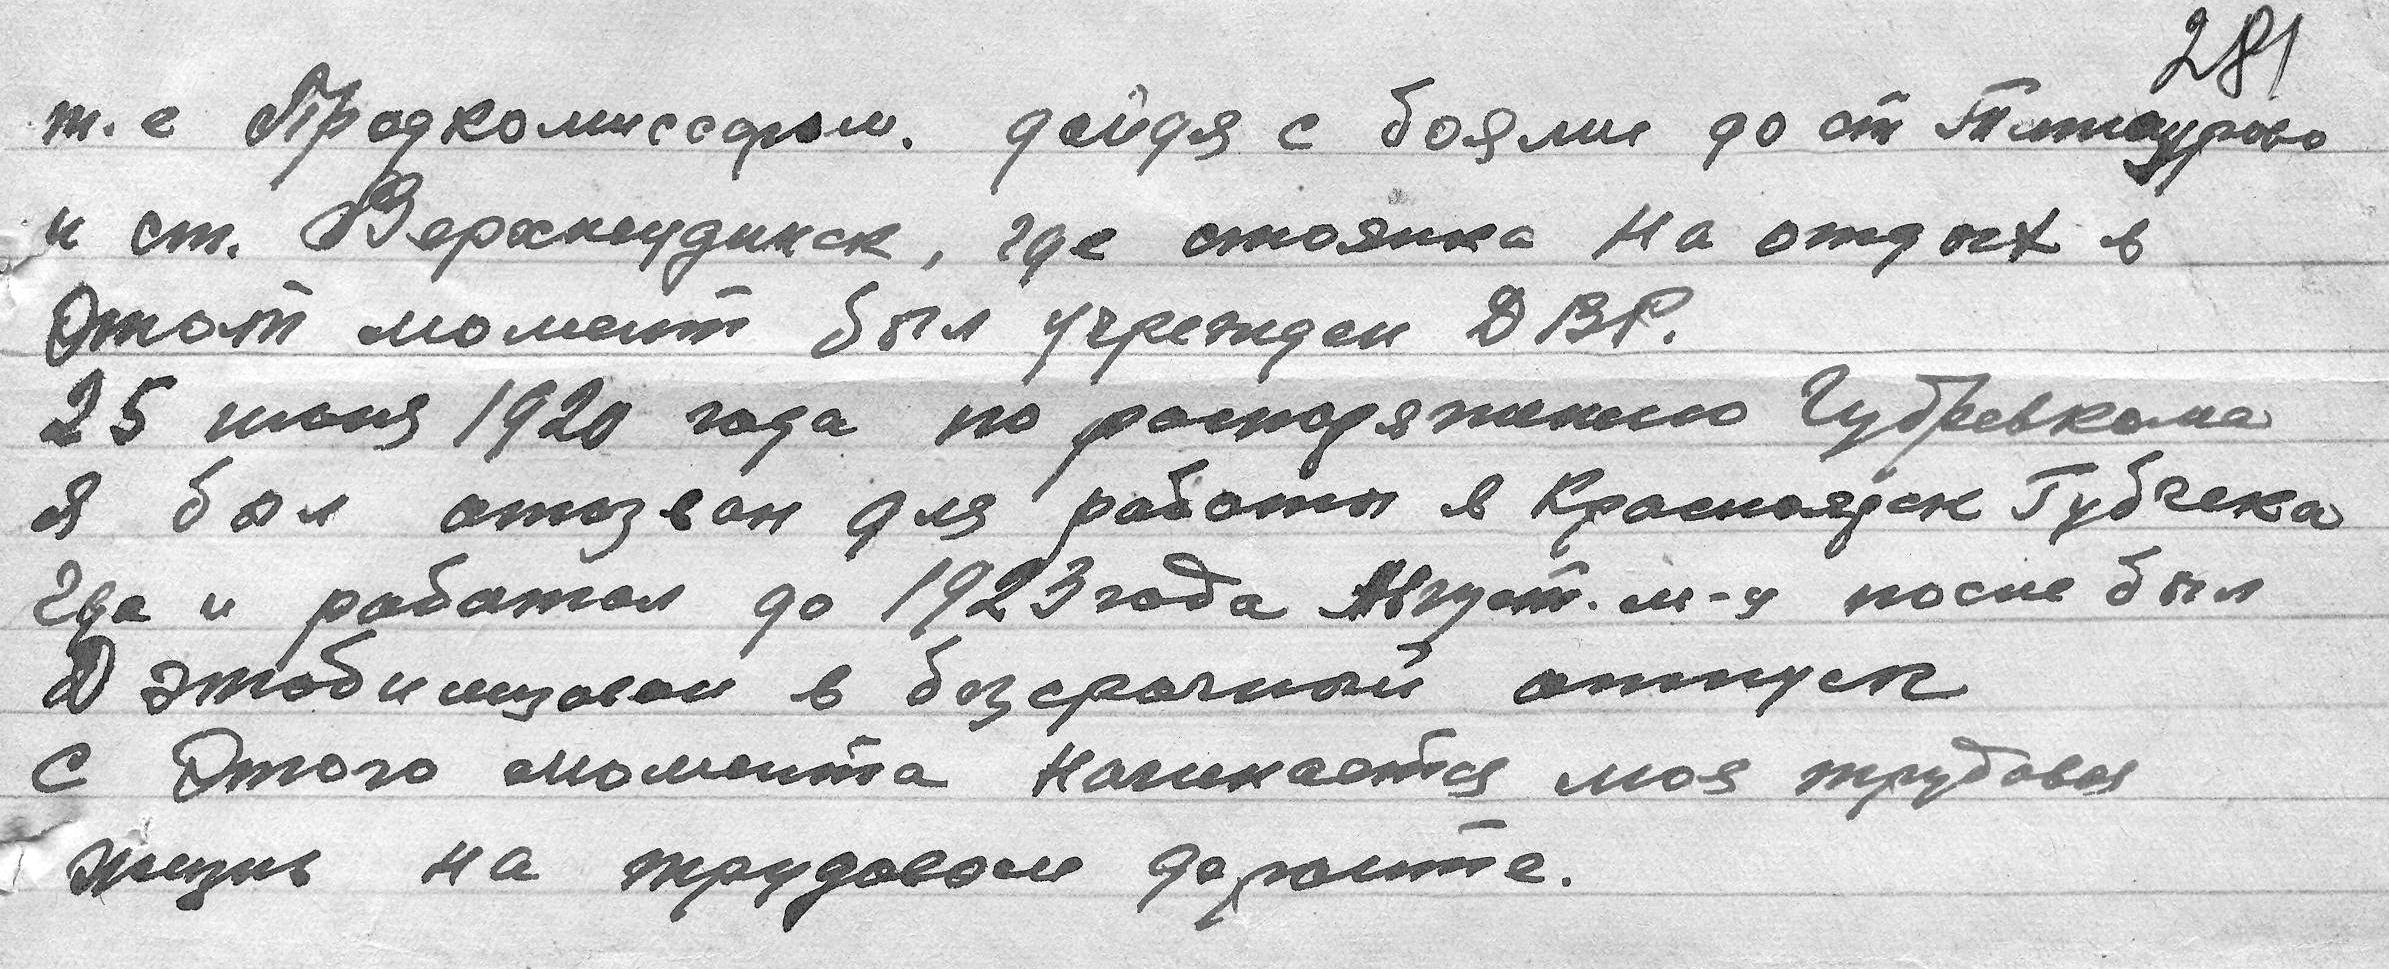 281
т.е Продкомиссаром. дойдя с боями до ст Татаурово
и ст. Верхнеудинск, где стоянка на отдых в
Этот момент был учрежден ДВР.
25 июня 1920 года по распоряжению Губревкома
я был отозван для работы в Красноярск Губчека
где и работал до 1923 года Август. м-ц после был
Дэмобилизован в безсрочный отпуск
С Этого момента начинается моя трудовая
жизнь на трудовом